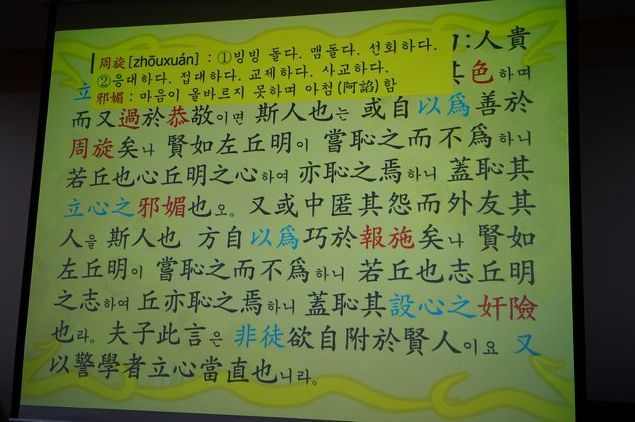 周旋[zhōuxuán] : ①빙빙 돌다. 맴돌다. 선회하다.
②응대하다. 접대하다. 교제하다. 사교하다.
邪媚 : 마음이 올바르지 못하며 아첨(阿諂)함
:人貴
立 其色하며
而又過於恭敬이면 斯人也는 或自以爲善於
周旋矣나 賢如左丘明이 嘗恥之而不爲하니
若丘也心丘明之心하여 亦恥之焉하니 蓋恥其
立心之邪媚也오。又或中匿其怨而外友其
人을 斯人也 方自以爲巧於報施矣나 賢如
左丘明이 嘗恥之而不爲하니 若丘也志丘明
之志하여 丘亦恥之焉하니 蓋恥其設心之奸險
也라。夫子此言은 非徒欲自附於賢人이요 又
以警學者立心當直也니라。